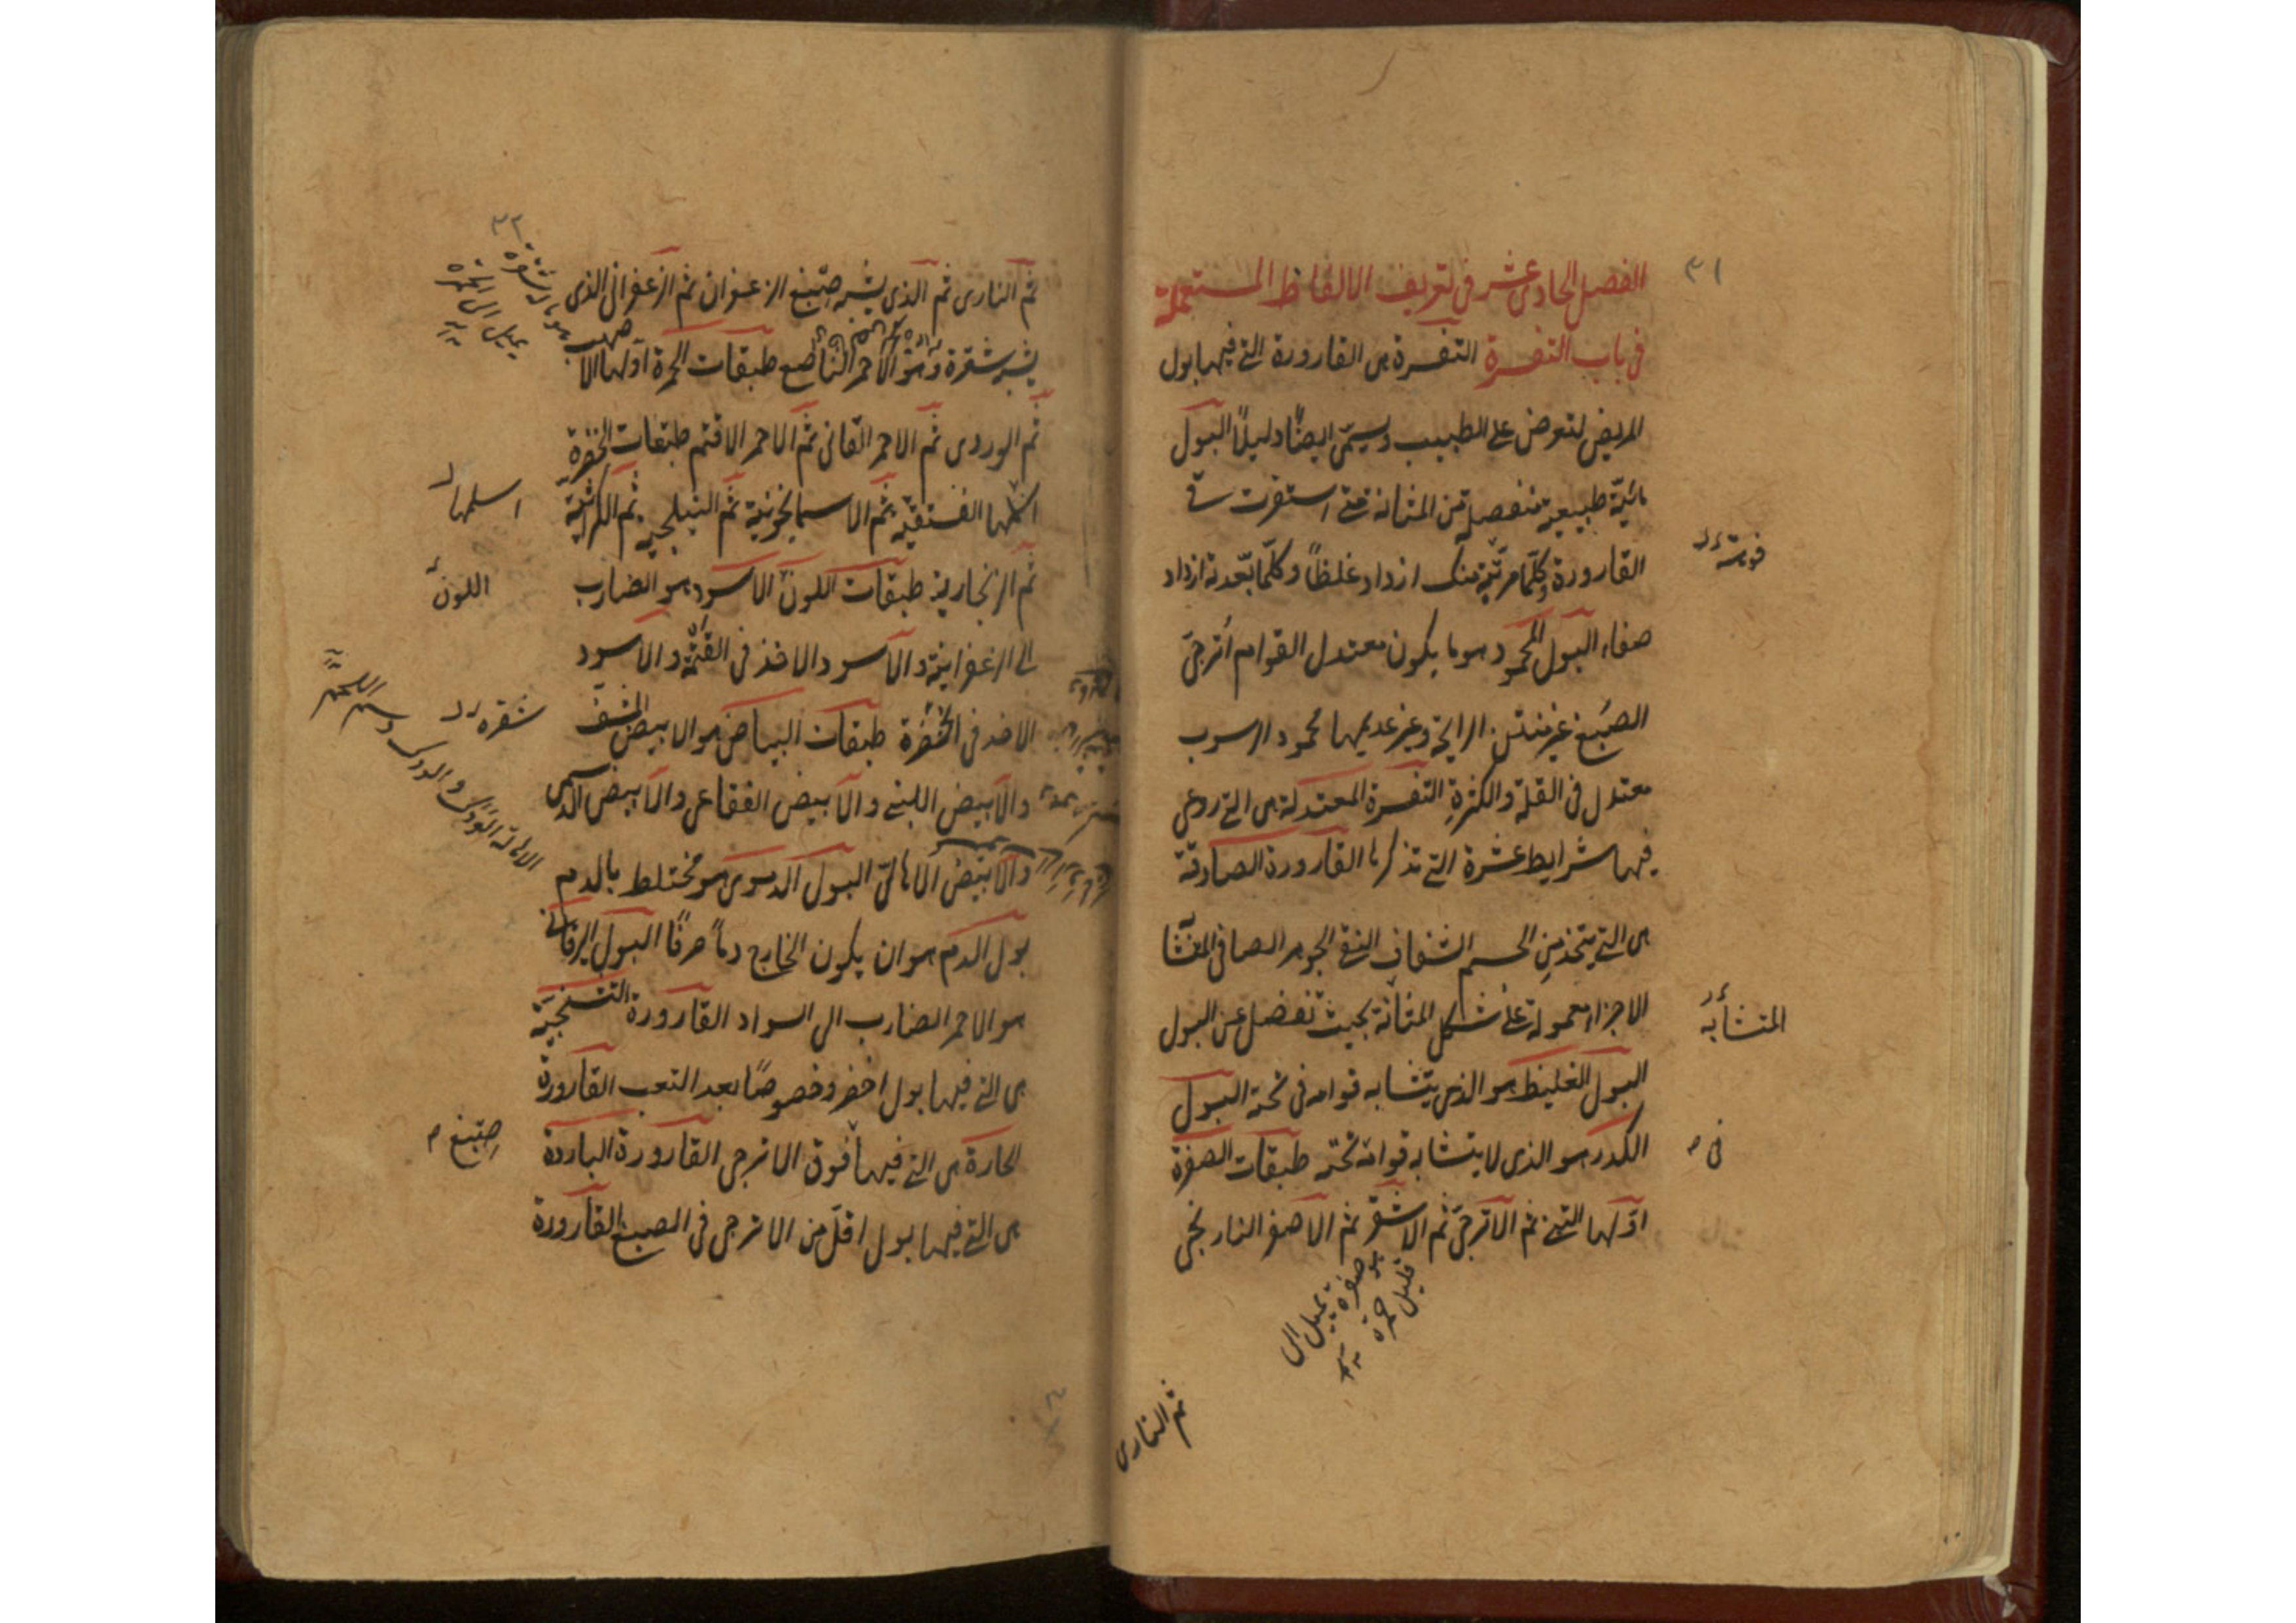 ٣١
الفصل الحادى عشر فى تعريف الالفاظ المستعملة
فى باب التفسرة التفسرة هى القارورة التى فيها بول
المريض لتعرض على الطبيب ويسمّى ايضًا دليلاً البول
مائيّة طبيعية منفصلة من المثانة متى استقرت فى
القارورة وكلّما قربته منك ازداد غلظاً وكلّما بعّدته ازداد
صفاء البول المحمود هو ما يكون معتدل القوام أترجىّ
الصبغ غير منتن الرايحة وغير عديمها محمود الرسوب
معتدل فى القلة والكثرة التفسرة المعتدلة هى التى روعى
فيها شرايط عشرة التى نذكرها القارورة الصادقة
هى التى يتخذ من الجسم الشفاف النقى الجوهر الصافى
الاجزاء معمولة على شكل المثانة بحيث تفضل عن البول
البول الغليظ هو الذى يتشابه قوامه فى نحته البول
الكدر هو الذى لا يتشابه قوامه نحته طبقات الصفرة
اوّلها التبنى ثم الاترجىّ ثم الاشقر ثم الاصفر النارنجى
المتشابه
فى
هو صفرة يميل الى
قليل حمرة
ثم النارى
٣٢
ثم النارى ثم الذى يشبه صبغ الزعفران ثم الزعفرانى الذى
يشبه شقرة وهو الاحمر الناصع طبقات الحمرة اولها الاصهب
ثم الوردى ثم الاحمر القانى ثم الاحمر الاقتم طبقات الخضرة
الفستقية ثم الاسمانجونية ثم النيلجية ثم الكراثية
ثم الزنجارية طبقات اللون الاسود هو الضارب
الى الزعفرانية والاسود الاخذ فى القتمة والاسود
الاخذ فى الخضرة طبقات البياض هو الابيض المشف
والابيض اللبنى والابيض الفقاعى والابيض الدسمى
والابيض الاهالىّ البول الدموى هو مختلط بالدم
بول الدم هو ان يكون الخارج دماً صرفًا البول اليرقانى
هو الاحمر الضارب الى السواد القارورة التشنجيّة
هى التى فيها بول اخضر وخصوصًا بعد التعب القارورة
الحارة هى التى فيها فوق الاترجى القارورة الباردة
هى التى فيها بول اقلّ من الاترجى فى الصبغ القارورة
يميل الى
اسلمها
اللون
شقره
صبغ